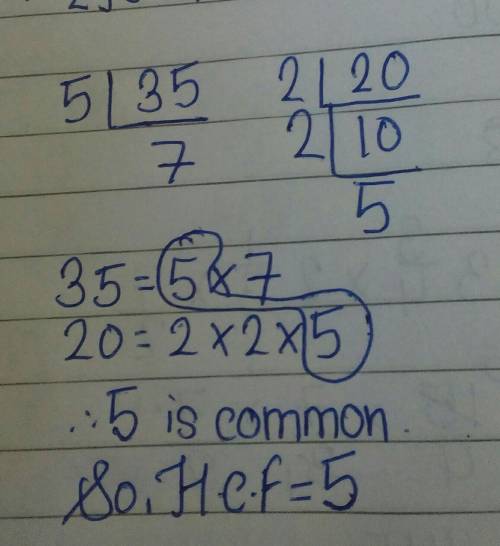 5 | 35
7
2 | 20
2 | 10
5
35 = 5 × 7
20 = 2 × 2 × 5
∴ 5 is common.
So, H.c.f = 5